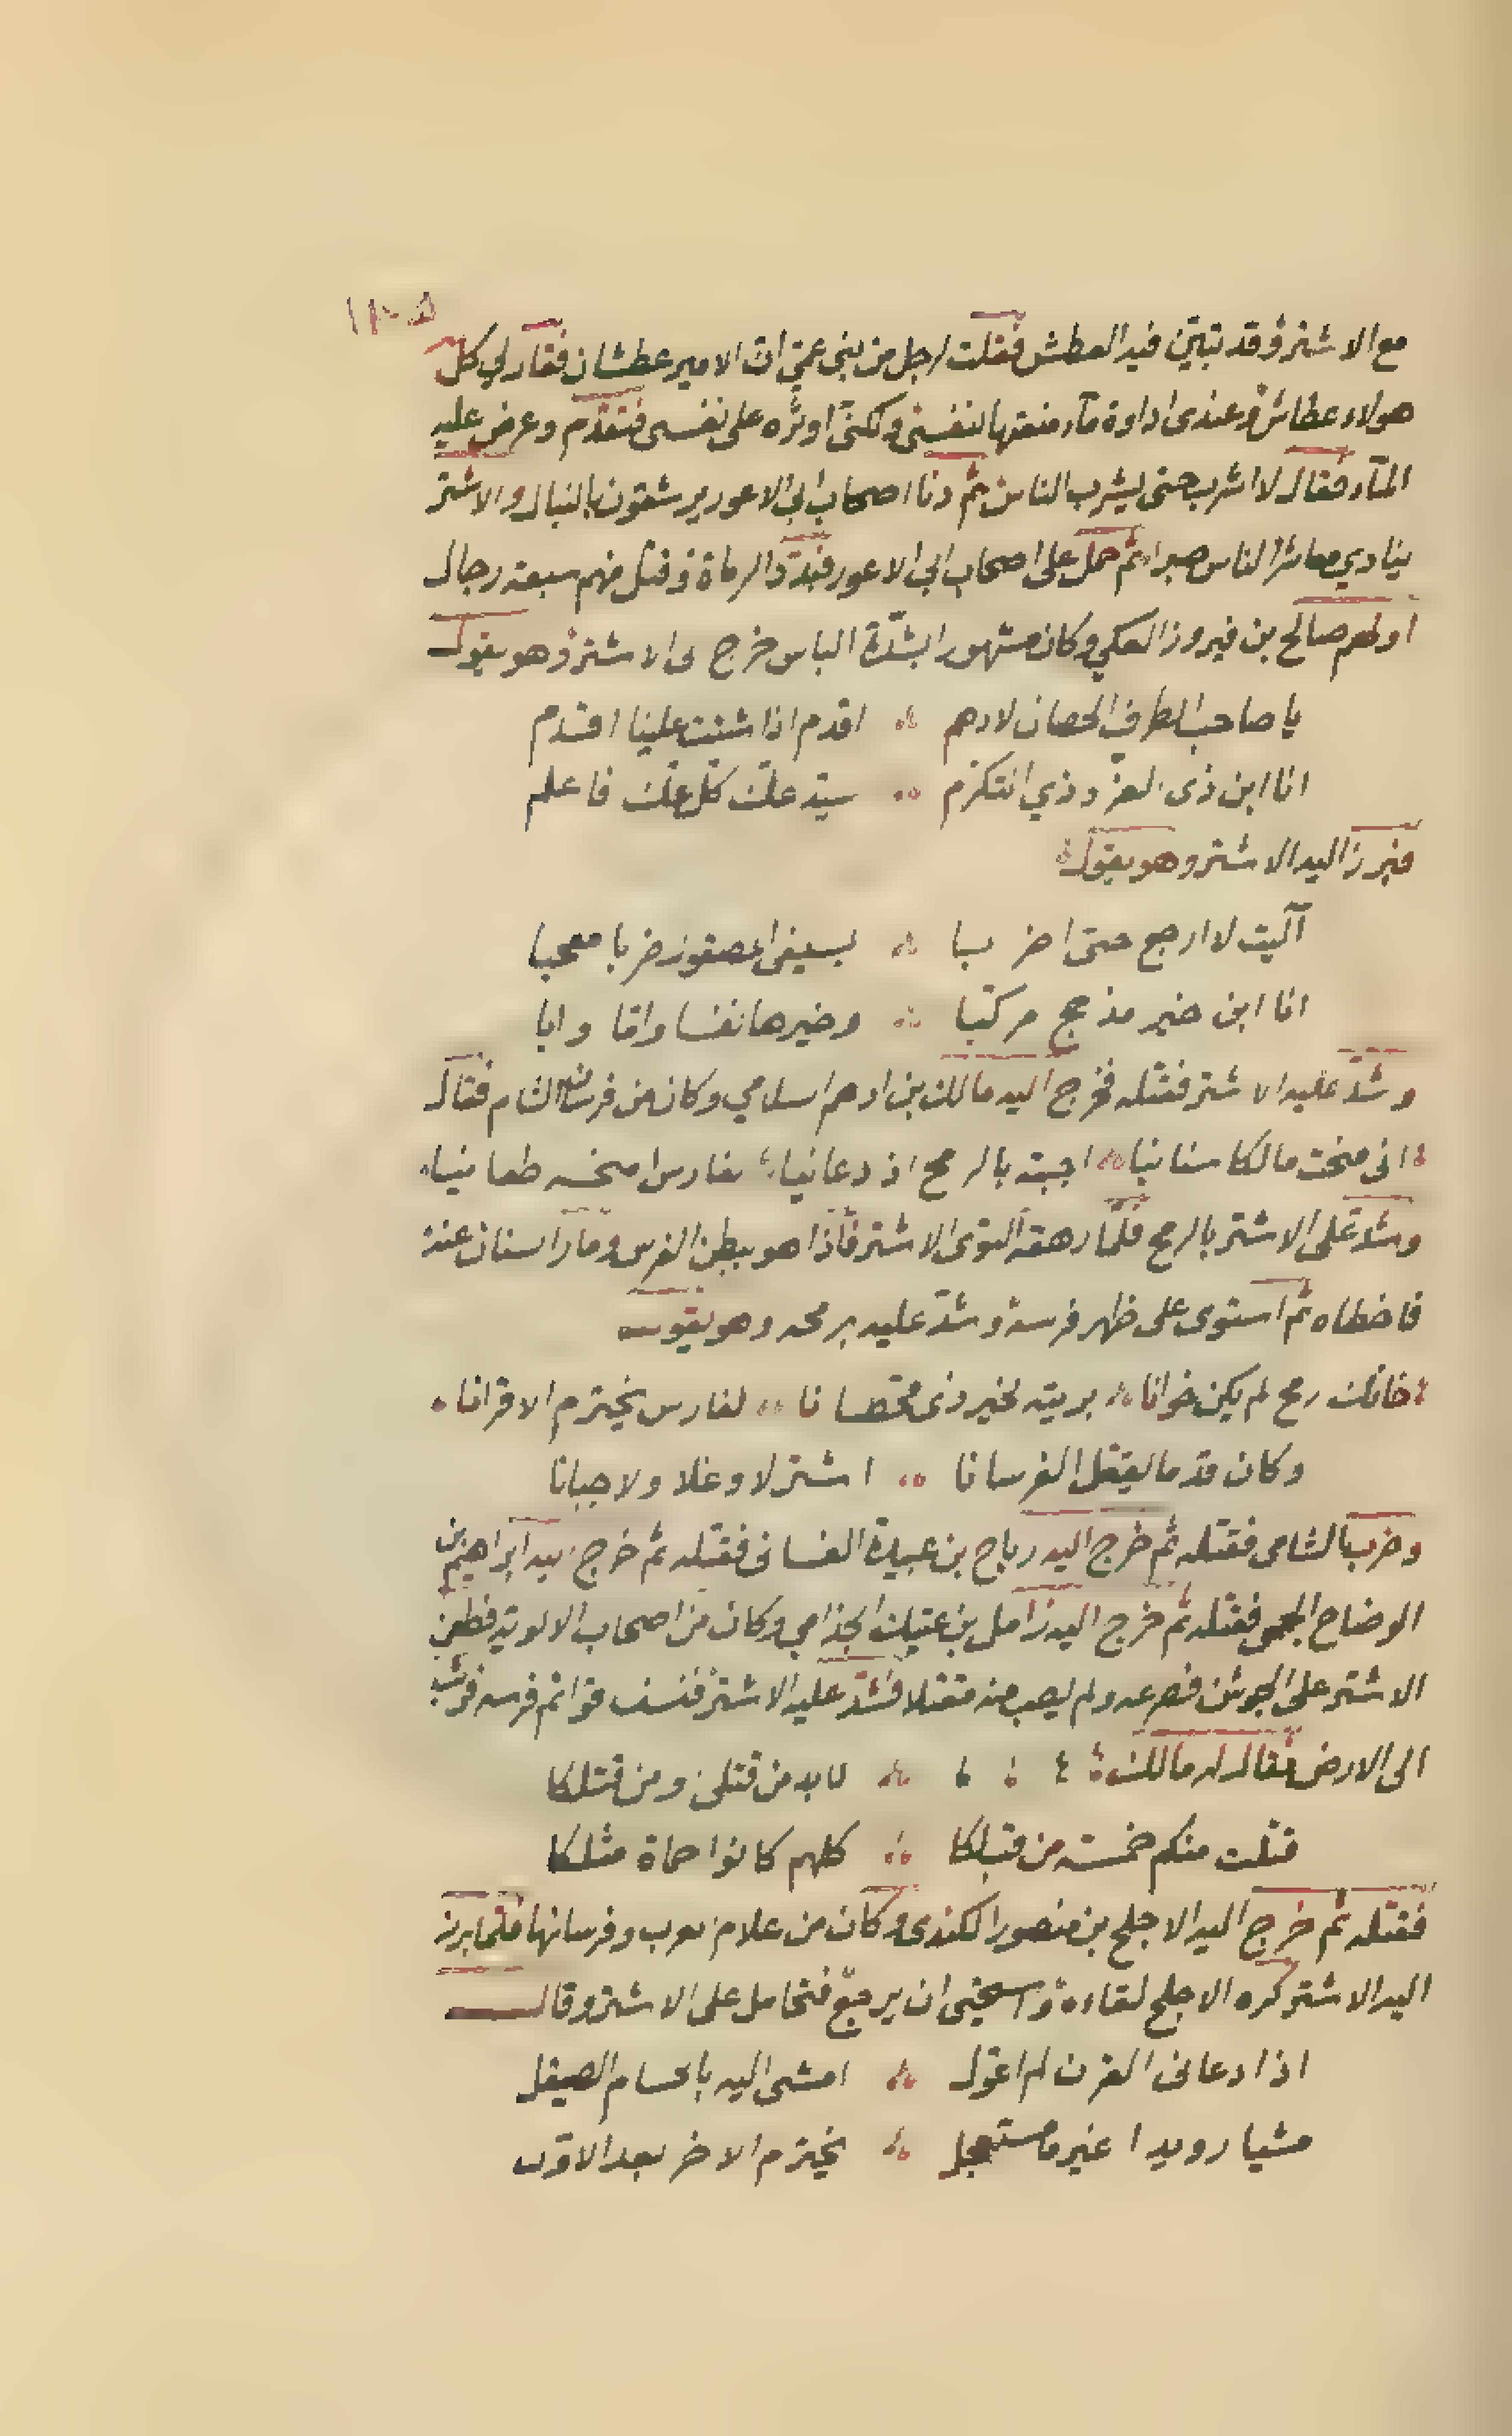 مع الاشتر وقد تبيّن فيه العطش فقلت لرجل من بنى عمّى انّ الامير عطشان فقال لي كل
هولاء عطاش وعندى اداوة مآء منعتها لنفسى ولكنّى اوثره على نفسى فتقدّم وعرض عليه
المآء فقال لا اشرب حتى يشرب الناس ثم دنا اصحاب ابى الاعور يرشقون بالنبال والاشتر
ينادي معاشر الناس صبرا ثم حمل على اصحاب ابى الاعور فبدّد الرماة وقتل منهم سبعة رجال
اولهم صالح بن فيروز العكي وكان مشهورا بشدّة الباس خرج الى الاشتر وهو يقول
يا صاحب الطرف الحصان لادهم ∴ اقدم اذا شئت علينا اقدم
انا ابن ذى العزّ وذي التكرّم ∴ سيّد علّ كلّ عكّ فاعلم
فبرز اليه الاشتر وهو يقول
آليت لا ارجع حتى اضربا ∴ بسيفى المصقول ضربا معجبا
انا ابن خير مذحج مركّبا ∴ وخيرها نفسا واما وابا
وشدّ عليه الاشتر فقتله فخرج اليه مالك بن ادهم السلامي وكان من فرسان الشام فقال
انى منحت مالكا سنانيا ∴ اجبته بالرمح اذ دعانيا ∴ لفارس امنحه طعانيا
وشدّ على الاشتر بالرمح فلمّا رهقه التوى الاشتر فاذا هو ببطن الفرس ومار السنان عنه
فاخطاه ثم استوى على ظهر فرسه وشدّ عليه برمحه وهو يقول
خانك رمح لم يكن خوانا ∴ بريته لخير ذى قحطانا ∴ لفارس يخترم الاقرانا
وكان قدما يقتل الفرسانا ∴ اشتر لا وغلا ولا جبانا
وضرب الشامى فقتله ثم خرج اليه رياح بن عبيدة الغسانى فقتله ثم خرج اليه ابراهيم بن
الوضاح الجمحى فقتله ثم خرج اليه زامل بن عتيك الجذامي وكان من اصحاب الالوية فطعن
الاشتر على الجوشن فصرعه ولم يصب منه مقتلا فشدّ عليه الاشتر فنسف قوائم فرسه فوثب
الى الارض فقال له مالك ∴ لا بد من قتلى ومن قتلكا
قتلت منكم خمسة من قبلكا ∴ كلهم كانوا حماة مثلكا
فقتله ثم خرج اليه الاجلح بن منصور الكندى وكان من اعلام العرب وفرسانها فلما برز
اليه الاشتر كره الاجلح لقاءه واستحيى ان يرجع فتحامل على الاشتر وقال
اذا دعانى القرن لم اعوّل ∴ امشى اليه بالحسام الصيقل
مشيا رويدا غير ما مستعجل ∴ يخترم الاخر بعد الاوّل